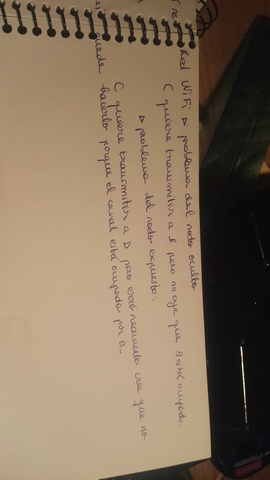 Red WiFi ▷ problema del nodo oculto
C quiere transmitir a B pero no oye que B está ocupado.
▷ problema del nodo expuesto:
C quiere transmitir a D pero erróneamente cree que no
puede hacerlo porque el canal está ocupado por B.